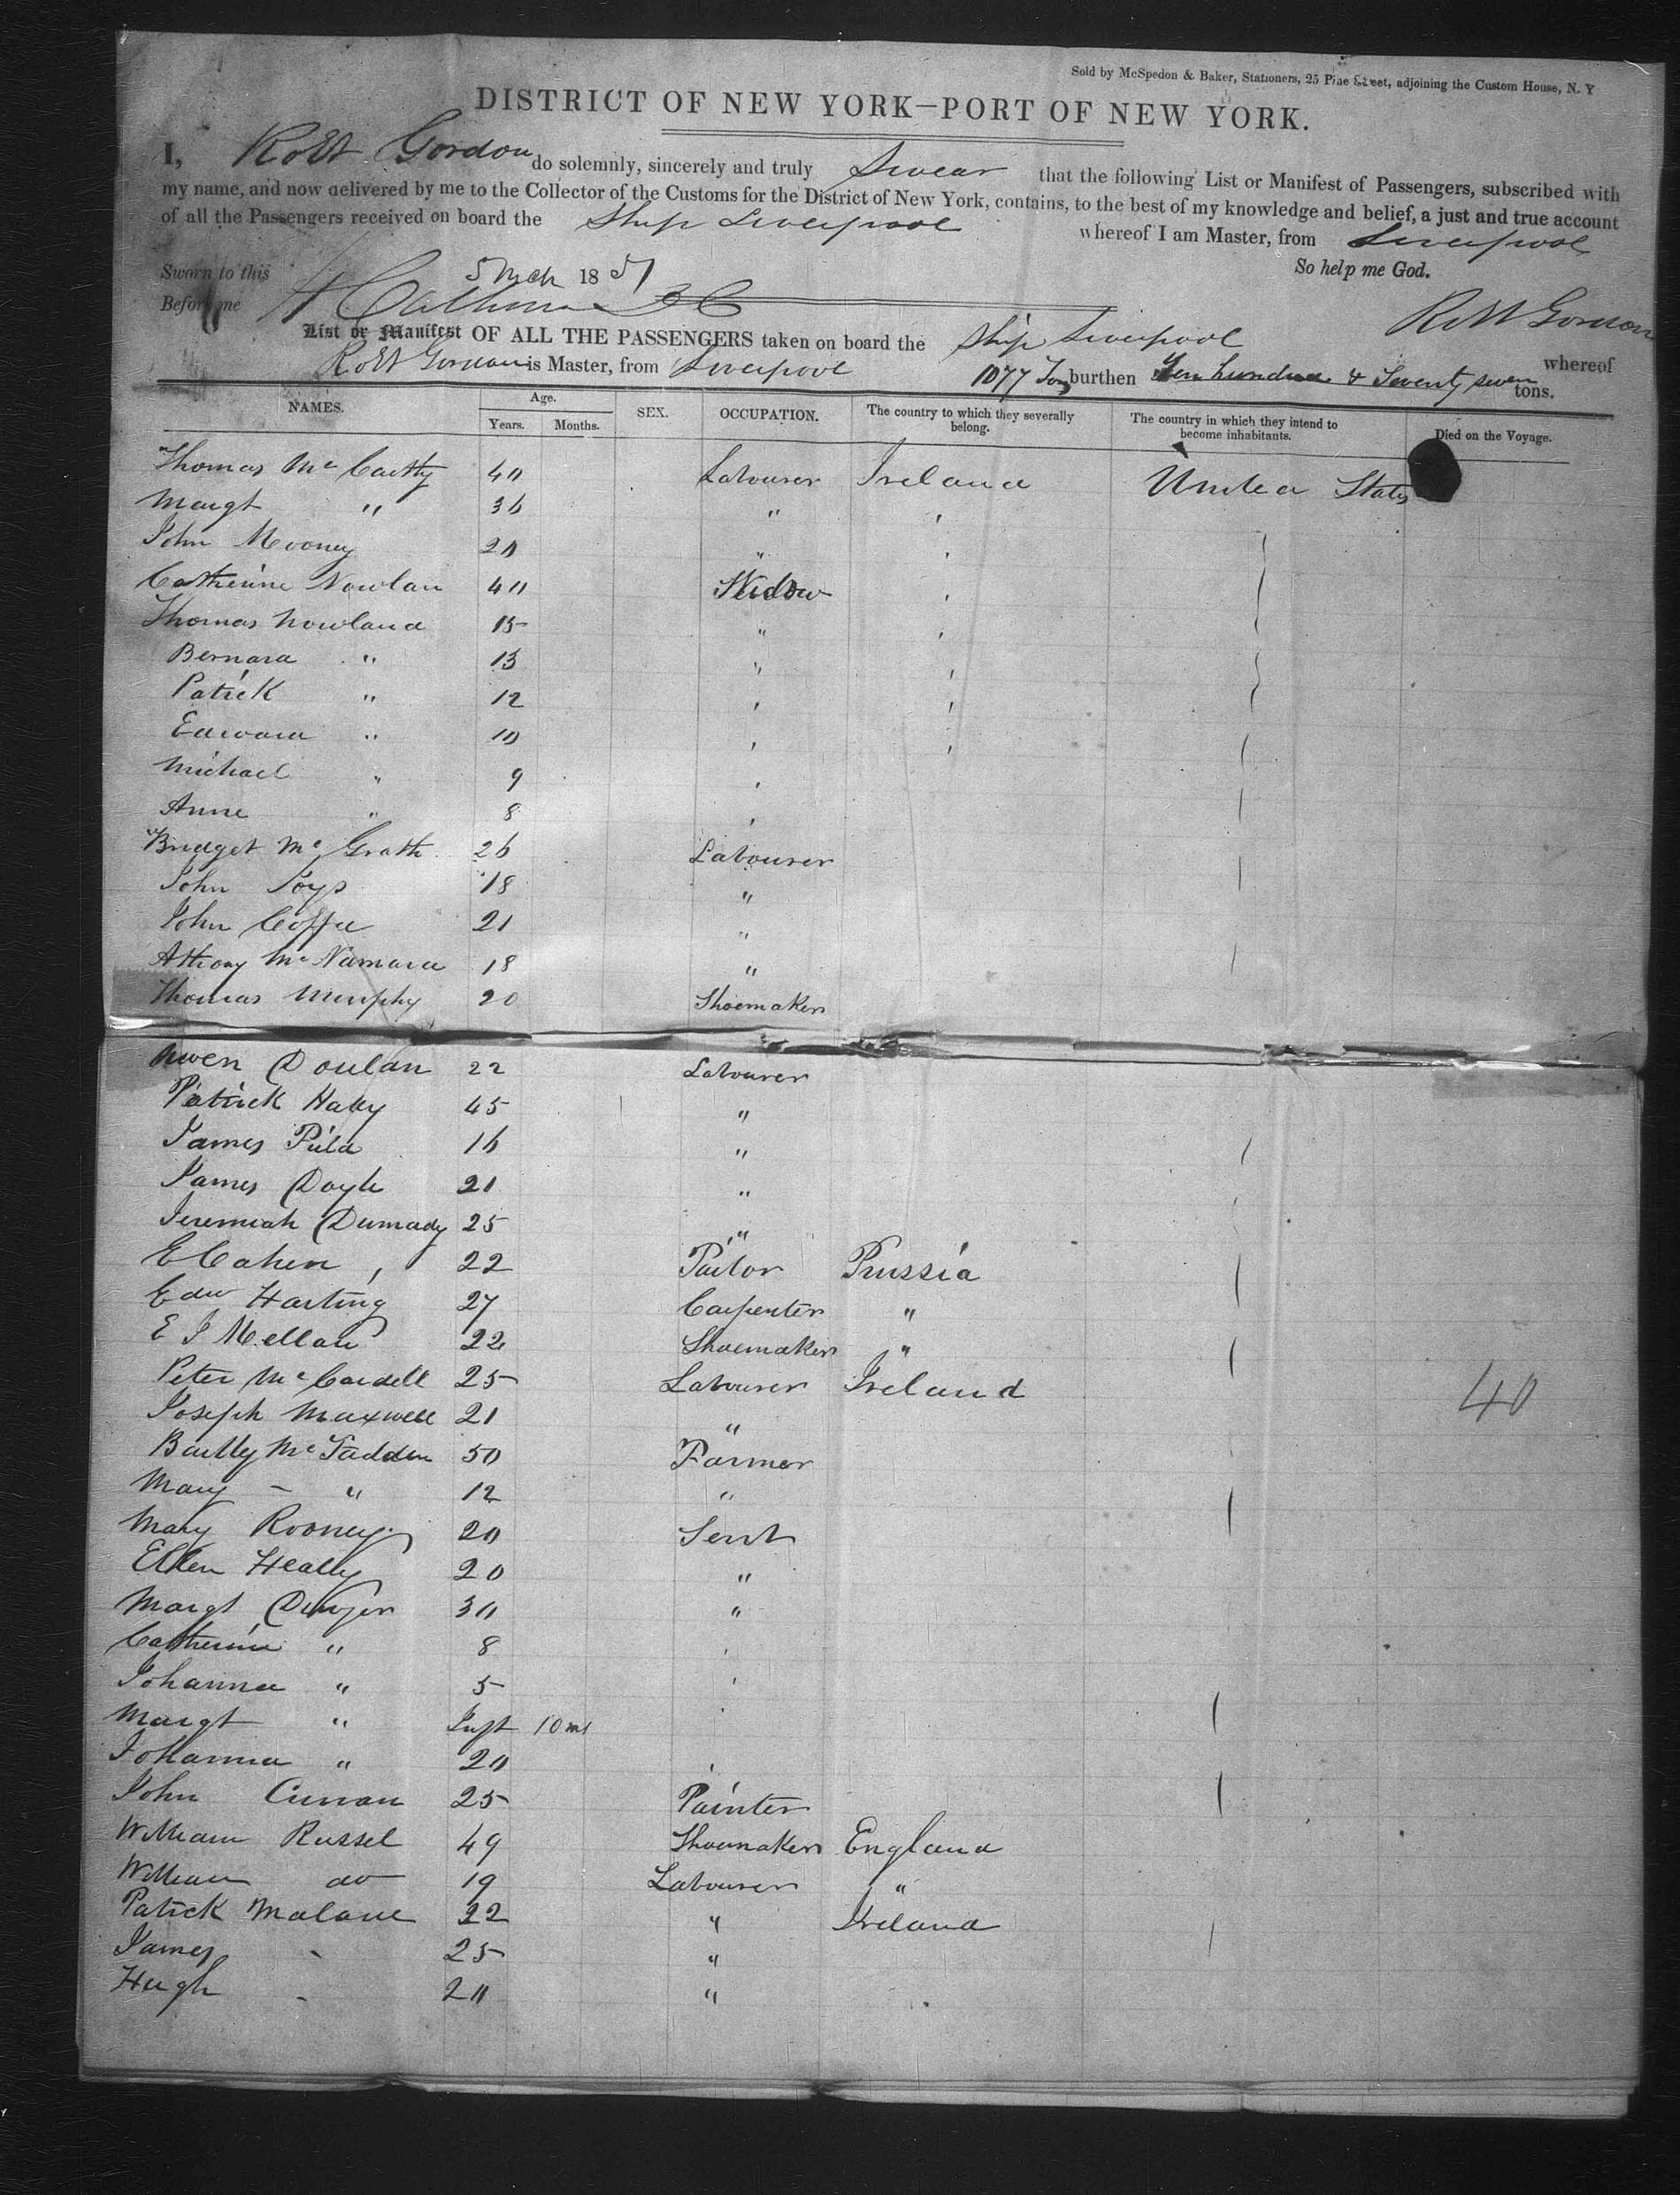 Sold by McSpedon & Baker, Stationers, 25 Pine Street, adjoining the Custom House, N. Y
DISTRICT OF NEW YORK—PORT OF NEW YORK.
I, Robt Gordon do solemnly, sincerely and truly Swear that the following List or Manifest of Passengers, subscribed with
my name, and now delivered by me to the Collector of the Customs for the District of New York, contains, to the best of my knowledge and belief, a just and true account
of all the Passengers received on board the Ship Liverpool whereof I am Master, from Liverpool
So help me God.
Sworn to this 5 Mch 1851
Before me
Robt Gordon
List or Manifest OF ALL THE PASSENGERS taken on board the Ship Liverpool whereof
Robt Gordon is Master, from Liverpool 1077 Tons burthen Ten hundred & Seventy seven tons.
NAMES. Age. Years. Months. SEX. OCCUPATION. The country to which they severally belong. The country in which they intend to become inhabitants. Died on the Voyage.
Thomas Mc Cartty 40 Labourer Ireland United States
Margt " 36 "
John Mooney 20 "
Catherine Nowlan 40 Widow
Thomas Nowland 15 "
Bernard " 13 "
Patrick " 12
Edward " 10
Michael " 9
Anne " 8
Bridget Mc Grath 26 Labourer
John 18 "
John Coffee 21 "
Athony Mc Namara 18 "
Thomas Murphy 20 Shoemaker
Owen Doulan 22 Labourer
Patrick Haly 45 "
James 16 "
James Doyle 21 "
Jeremiah 25 "
E Cahen 22 Tailor Prussia
Edw Harting 27 Carpenter "
E J Mellau 22 Shoemaker "
Peter Mc Cardell 25 Labourer Ireland
Joseph Maxwell 21 "
40
Bartly Mc Fadden 50 Farmer
Mary - " 12 "
Mary Rooney 20 Servt
Ellen Heally 20 "
Margt Dwyer 30 "
Catherine " 8
Johanna " 5
Margt " Inft 10 ms
Johanna " 20
John Curran 25 Painter
William Russel 49 Shoemaker England
William do 19 Labourer "
Patrick Malane 22 " Ireland
James - 25 "
Hugh - 20 "